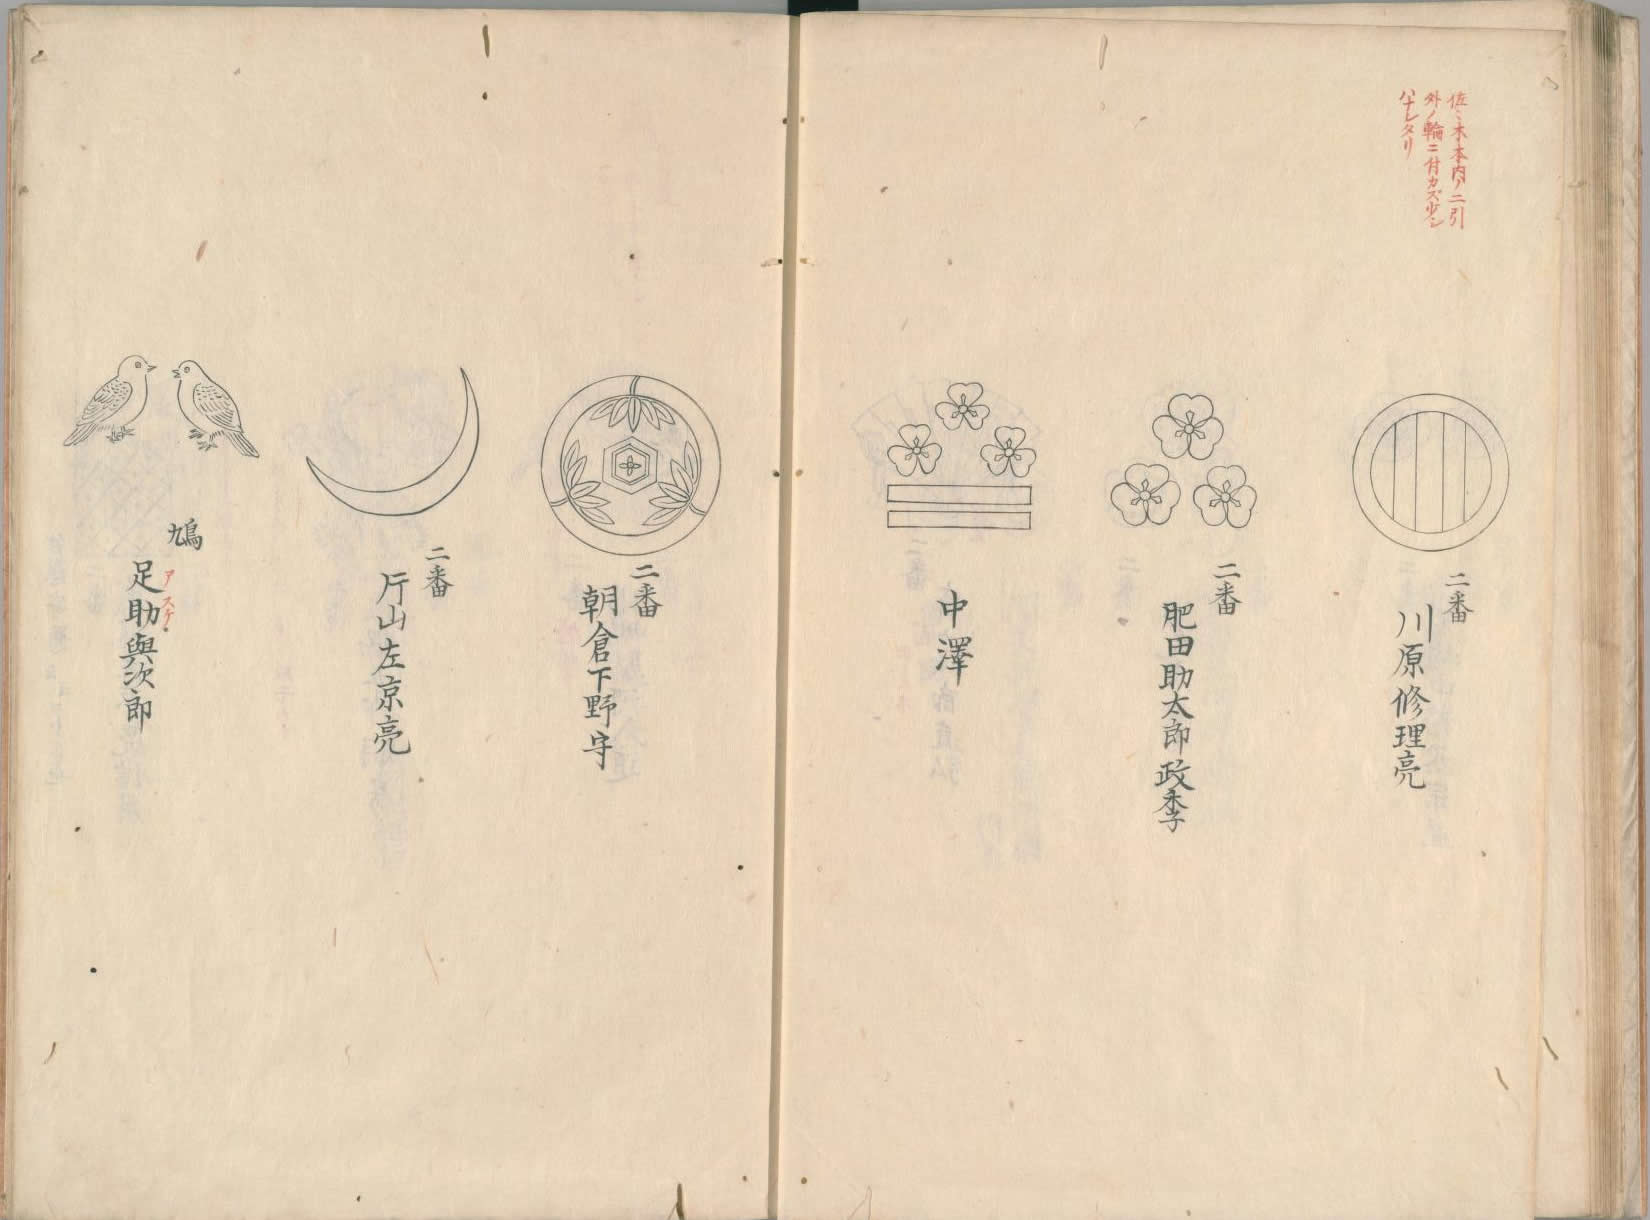 佐々木本内ノ二引
外ノ輪ニ付カズ少シ
ハナレタリ
二番
川原修理亮
二番
肥田助太郎政季
中澤
二番
朝倉下野守
二番
片山左京亮
鳩
足助與次郎
アスケ